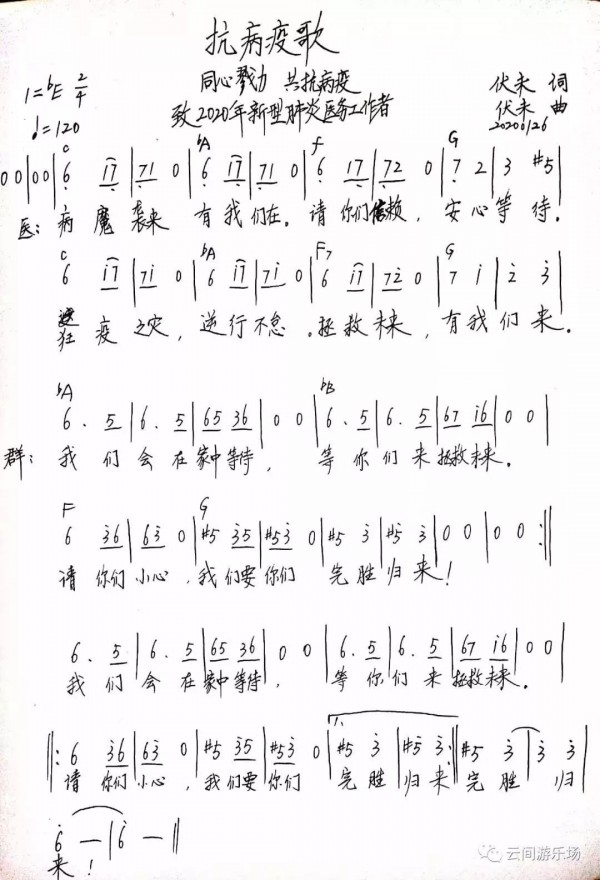 抗病疫歌
同心戮力 共抗病疫
致2020年新型肺炎医务工作者
伏未 词
伏未 曲
20200126
1=bE 2/4
♩=120
C bA F G
00|00|6 17|71 0|6 17|71 0|6 17|72 0|7 2|3 #5|
医: 病魔袭来 有我们在。请你们信赖,安心等待。
C bA F7 G
6 17|71 0|6 17|71 0|6 17|72 0|7 1|2 3|
狂疫之灾,逆行不怠。拯救未来,有我们来。
bA bB
6. 5|6. 5|65 36|0 0|6. 5|6. 5|67 16|0 0|
群: 我们会在家中等待,等你们来拯救未来。
F G
6 36|63 0|#5 35|#53 0|#5 3|#5 3|00|00:||
请你们小心,我们要你们完胜归来!
6. 5|6. 5|65 36|0 0|6. 5|6. 5|67 16|0 0|
我们会在家中等待,等你们来拯救未来。
1.
||:6 36|63 0|#5 35|#53 0|#5 3|#5 3:||#5 3|3 3|
请你们小心,我们要你们 完胜归来 完胜 归
6 —|6 —||
来!
云间游乐场